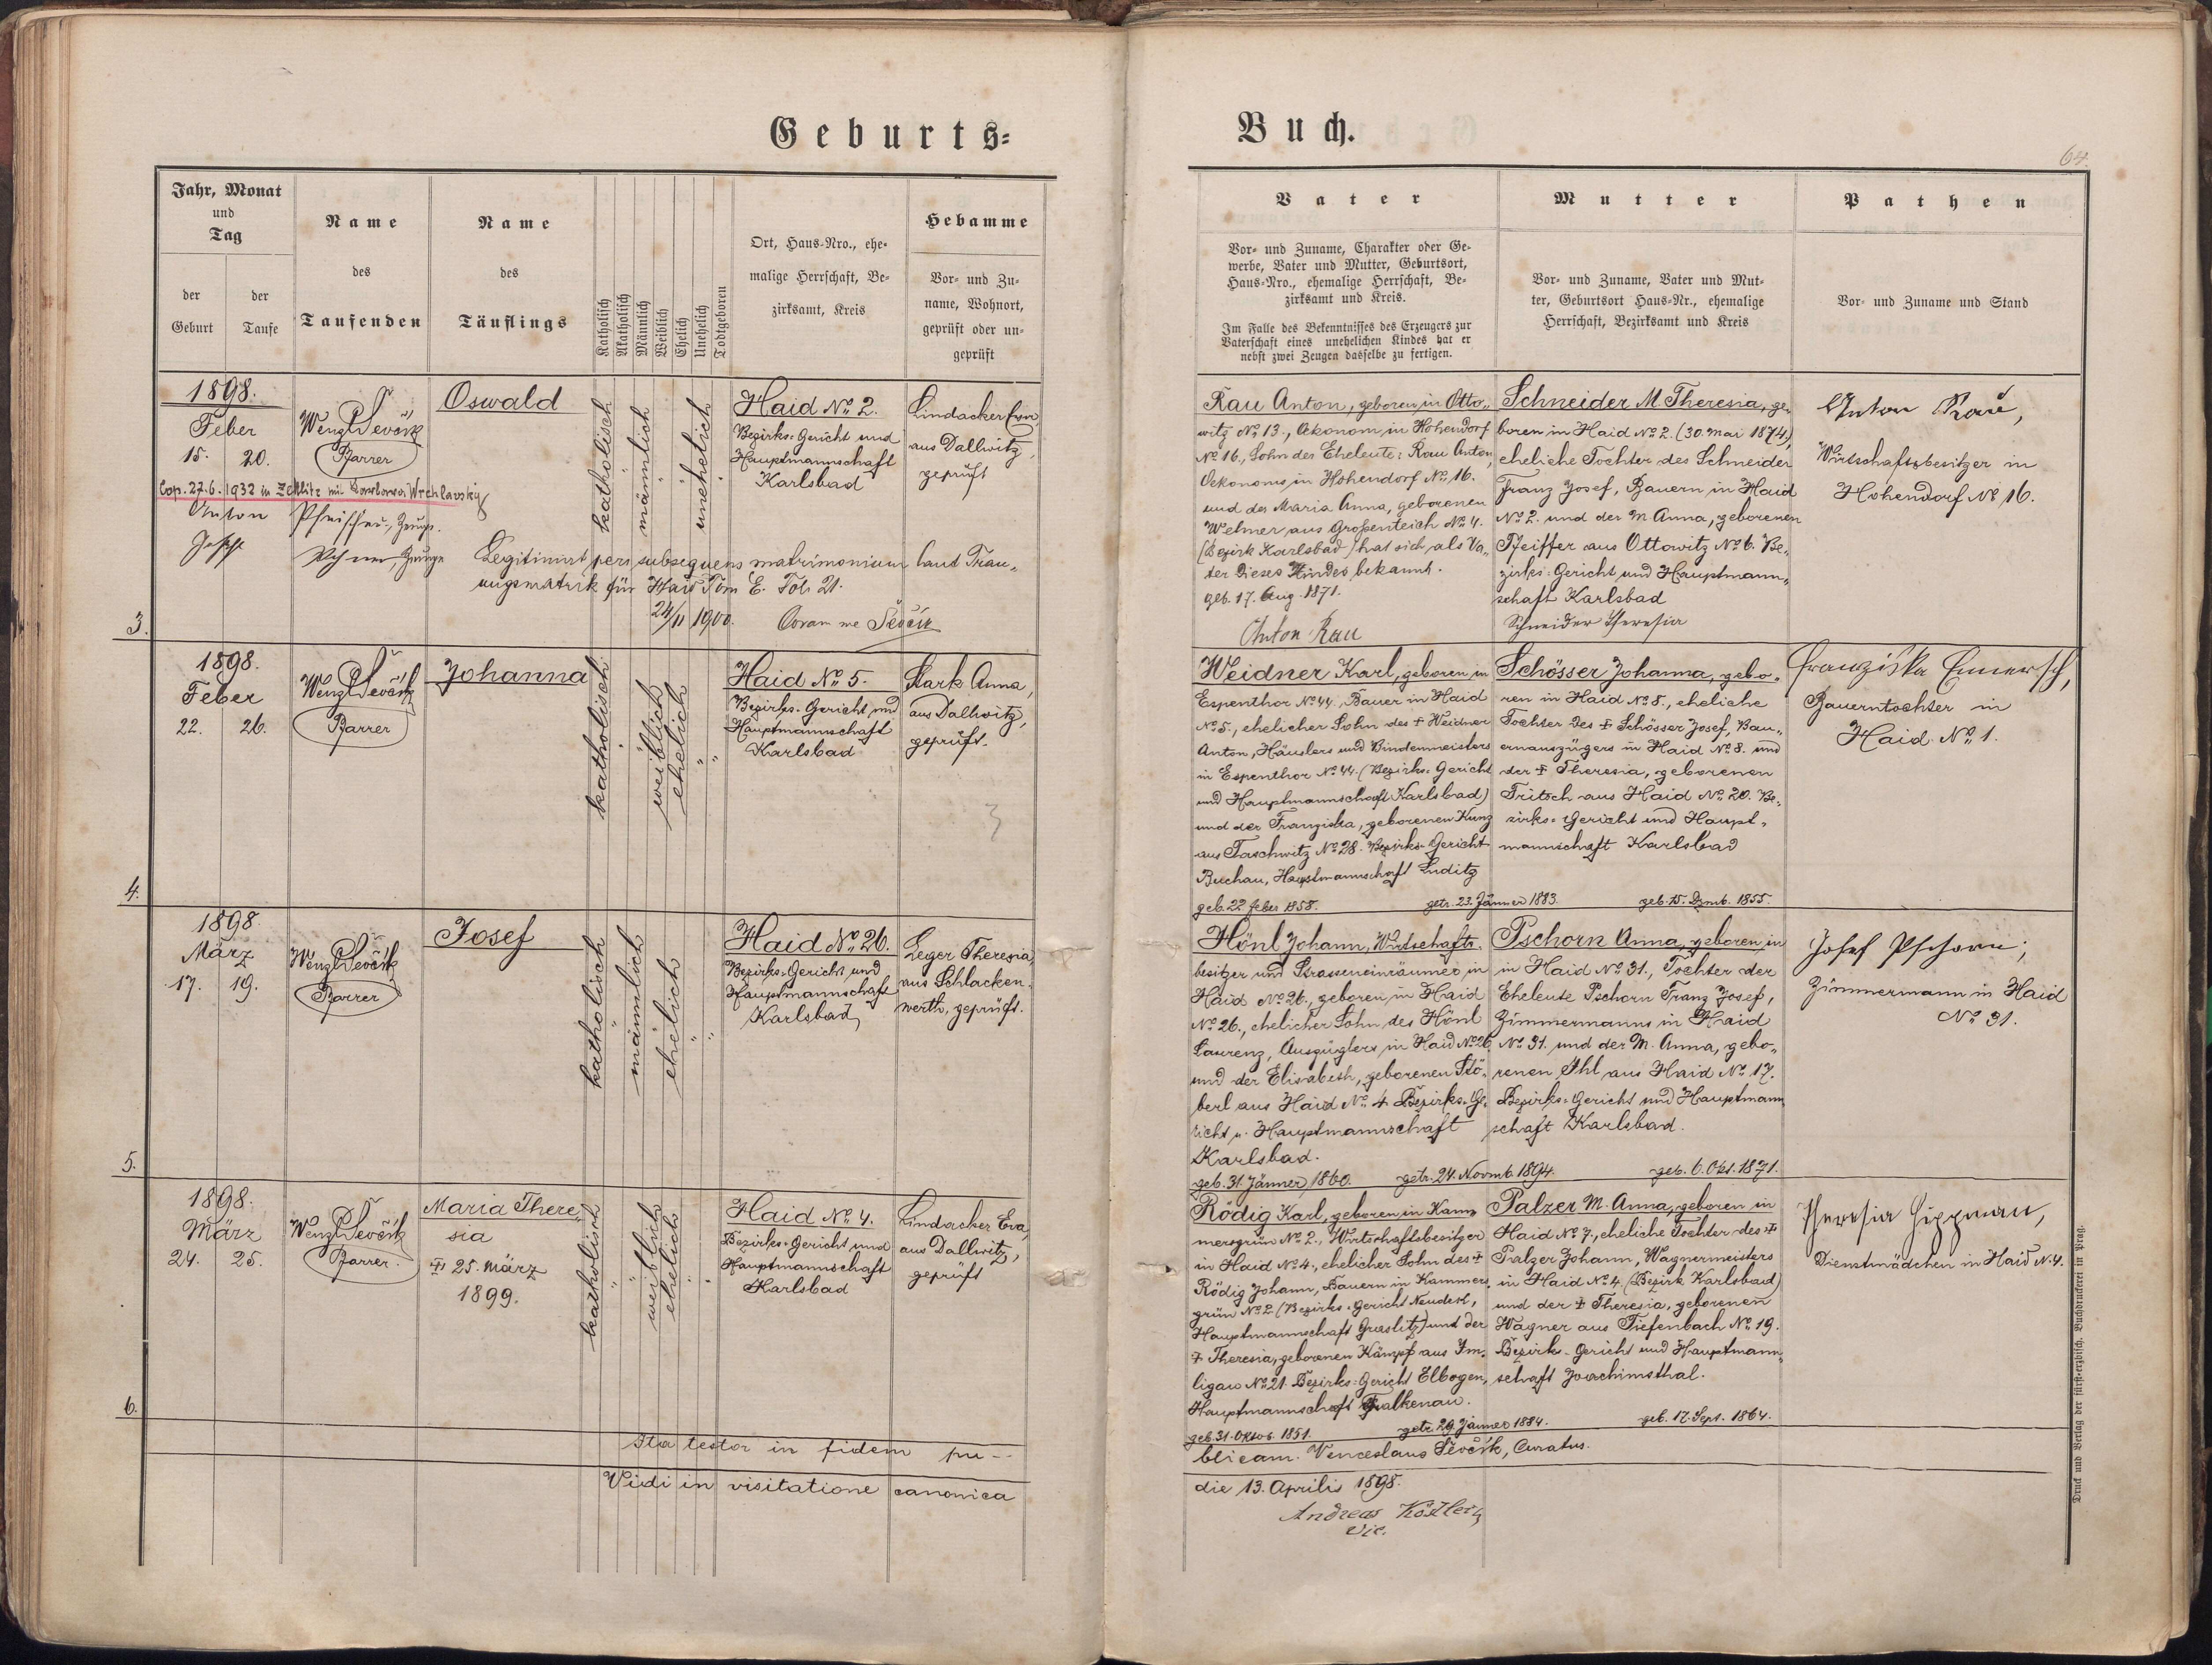 Geburts=
Buch.
64.
Jahr, Monat
und
Tag
der
Geburt
der
Taufe
Name
des
Taufenden
Name
des
Täuflings
Katholisch
Akatholisch
Männlich
Weiblich
Ehelich
Unehelich
Todtgeboren
Ort, Haus-Nro., ehe-
malige Herrschaft, Be-
zirksamt, Kreis
Hebamme
Vor- und Zu-
name, Wohnort,
geprüft oder un-
geprüft
Vater
Vor- und Zuname, Charakter oder Ge-
werbe, Vater und Mutter, Geburtsort,
Haus-Nro., ehemalige Herrschaft, Be-
zirksamt und Kreis.
Im Falle des Bekenntnisses des Erzeugers zur
Vaterschaft eines unehelichen Kindes hat er
nebst zwei Zeugen dasselbe zu fertigen.
Mutter
Vor- und Zuname, Vater und Mut-
ter, Geburtsort Haus-Nr., ehemalige
Herrschaft, Bezirksamt und Kreis
Pathen
Vor- und Zuname und Stand
3.
1898.
Feber
15. 20.
Cop. 27.6.1932 in Zettlitz mit Wrchlavsky
Wenzl Ševčík
Pfarrer
Oswald
katholisch
männlich
unehelich
Haid No. 2.
Bezirks=Gericht und
Hauptmannschaft
Karlsbad
Lindacker Eva,
aus Dallwitz,
geprüft
Anton Zeuge.
Zeuge
Legitimirt per subsequens matrimonium laut Trau-
ungsmatrik für Haid Tom E. Fol. 21.
24/11 1900. Coram me Ševčík
Rau Anton, geboren in Otto-
witz No. 13., Oekonom in Hohendorf
No 16., Sohn der Eheleute: Rau Anton,
Oekonoms in Hohendorf No. 16.
und der Maria Anna, geborenen
Welmer aus Großenteich No. 4.
(Bezirk Karlsbad) hat sich als Va-
ter dieses Kindes bekannt.
geb. 17. Aug. 1871.
Anton Rau
Schneider M. Theresia, ge-
boren in Haid No. 2. (30. Mai 1874.),
eheliche Tochter des Schneider
Franz Josef, Bauern in Haid
No. 2. und der M. Anna, geborenen
Pfeiffer aus Ottowitz No. 6. Be-
zirks=Gericht und Hauptmann-
schaft Karlsbad
Schneider Theresia
Anton Rau,
Wirtschaftsbesitzer in
Hohendorf No 16.
4.
1898.
Feber
22. 26.
Wenzl Ševčík
Pfarrer
Johanna
katholisch
weiblich
ehelich
Haid No. 5.
Bezirks=Gericht und
Hauptmannschaft
Karlsbad
Stark Anna,
aus Dallwitz,
geprüft.
3
Weidner Karl, geboren in
Espenthor No. 44, Bauer in Haid
No. 5., ehelicher Sohn des † Weidner
Anton, Häuslers und Bindermeisters
in Espenthor No. 44. (Bezirks=Gericht
und Hauptmannschaft Karlsbad)
und der Franziska, geborenen Kunz
aus Taschwitz No. 28. Bezirks=Gericht
Buchau, Hauptmannschaft Luditz
geb. 22. Feber 1858. getr. 23. Jänner 1883. geb. 15. Dzmb. 1855.
Schösser Johanna, gebo-
ren in Haid No. 5., eheliche
Tochter des † Schösser Josef, Bau-
ernauszügers in Haid No. 8. und
der † Theresia, geborenen
Tritsch aus Haid No. 20. Be-
zirks=Gericht und Haupt-
mannschaft Karlsbad
Franziska Emersch,
Bauerntochter in
Haid No. 1.
5.
1898.
März
17. 19.
Wenzl Ševčík
Pfarrer
Josef
katholisch
männlich
ehelich
Haid No. 26.
Bezirks=Gericht und
Hauptmannschaft
Karlsbad
Leger Theresia,
aus Schlacken-
werth, geprüft.
Hönl Johann, Wirtschafts-
besitzer und Strasseneinräumer in
Haid No. 26., geboren in Haid
No. 26., ehelicher Sohn des Hönl
Laurenz, Auszüglers in Haid No. 26.
und der Elisabeth, geborenen Stö-
berl aus Haid No. 4. Bezirks=Ge-
richt u. Hauptmannschaft
Karlsbad.
geb. 31. Jänner 1860. getr. 24. Novmb. 1894. geb. 6. Okt. 1871.
Pschorn Anna, geboren in
in Haid No. 31., Tochter der
Eheleute Pschorn Franz Josef,
Zimmermanns in Haid
No. 31. und der M. Anna, gebo-
renen Ihl aus Haid No. 17.
Bezirks=Gericht und Hauptmann-
schaft Karlsbad.
Josef Pschorn,
Zimmermann in Haid
No. 31.
6.
1898.
März
24. 25.
Wenzl Ševčík
Pfarrer.
Maria There-
sia
† 25. März
1899.
katholisch
weiblich
ehelich
Haid No. 4.
Bezirks=Gericht und
Hauptmannschaft
Karlsbad
Lindacker Eva,
aus Dallwitz,
geprüft
Rödig Karl, geboren in Kam-
mersgrün No. 2., Wirtschaftsbesitzer
in Haid No. 4., ehelicher Sohn des †
Rödig Johann, Bauern in Kammers-
grün No. 2 (Bezirks=Gericht Neudek,
Hauptmannschaft Graslitz) und der
† Theresia, geborenen Kämpf aus Im-
ligau No. 21. Bezirks=Gericht Elbogen,
Hauptmannschaft Falkenau.
geb. 31. Oktob. 1851. getr. 29. Jänner 1884. geb. 17. Sept. 1864.
Palzer M. Anna, geboren in
Haid No. 7., eheliche Tochter des †
Palzer Johann, Wagnermeisters
in Haid No. 4. (Bezirk Karlsbad)
und der † Theresia, geborenen
Wagner aus Tiefenbach No. 19.
Bezirk-Gericht und Hauptmann-
schaft Joachimsthal.
Theresia Hippman,
Dienstmädchen in Haid N. 4.
Ita testor in fidem pu--
blicam. Venceslaus Ševčík, Curatus.
Vidi in visitatione canonica
die 13. Aprilis 1898.
Andreas Köstler,
Vic.
Druck und Verlag der fürsterzbisch. Buchdruckerei in Prag.